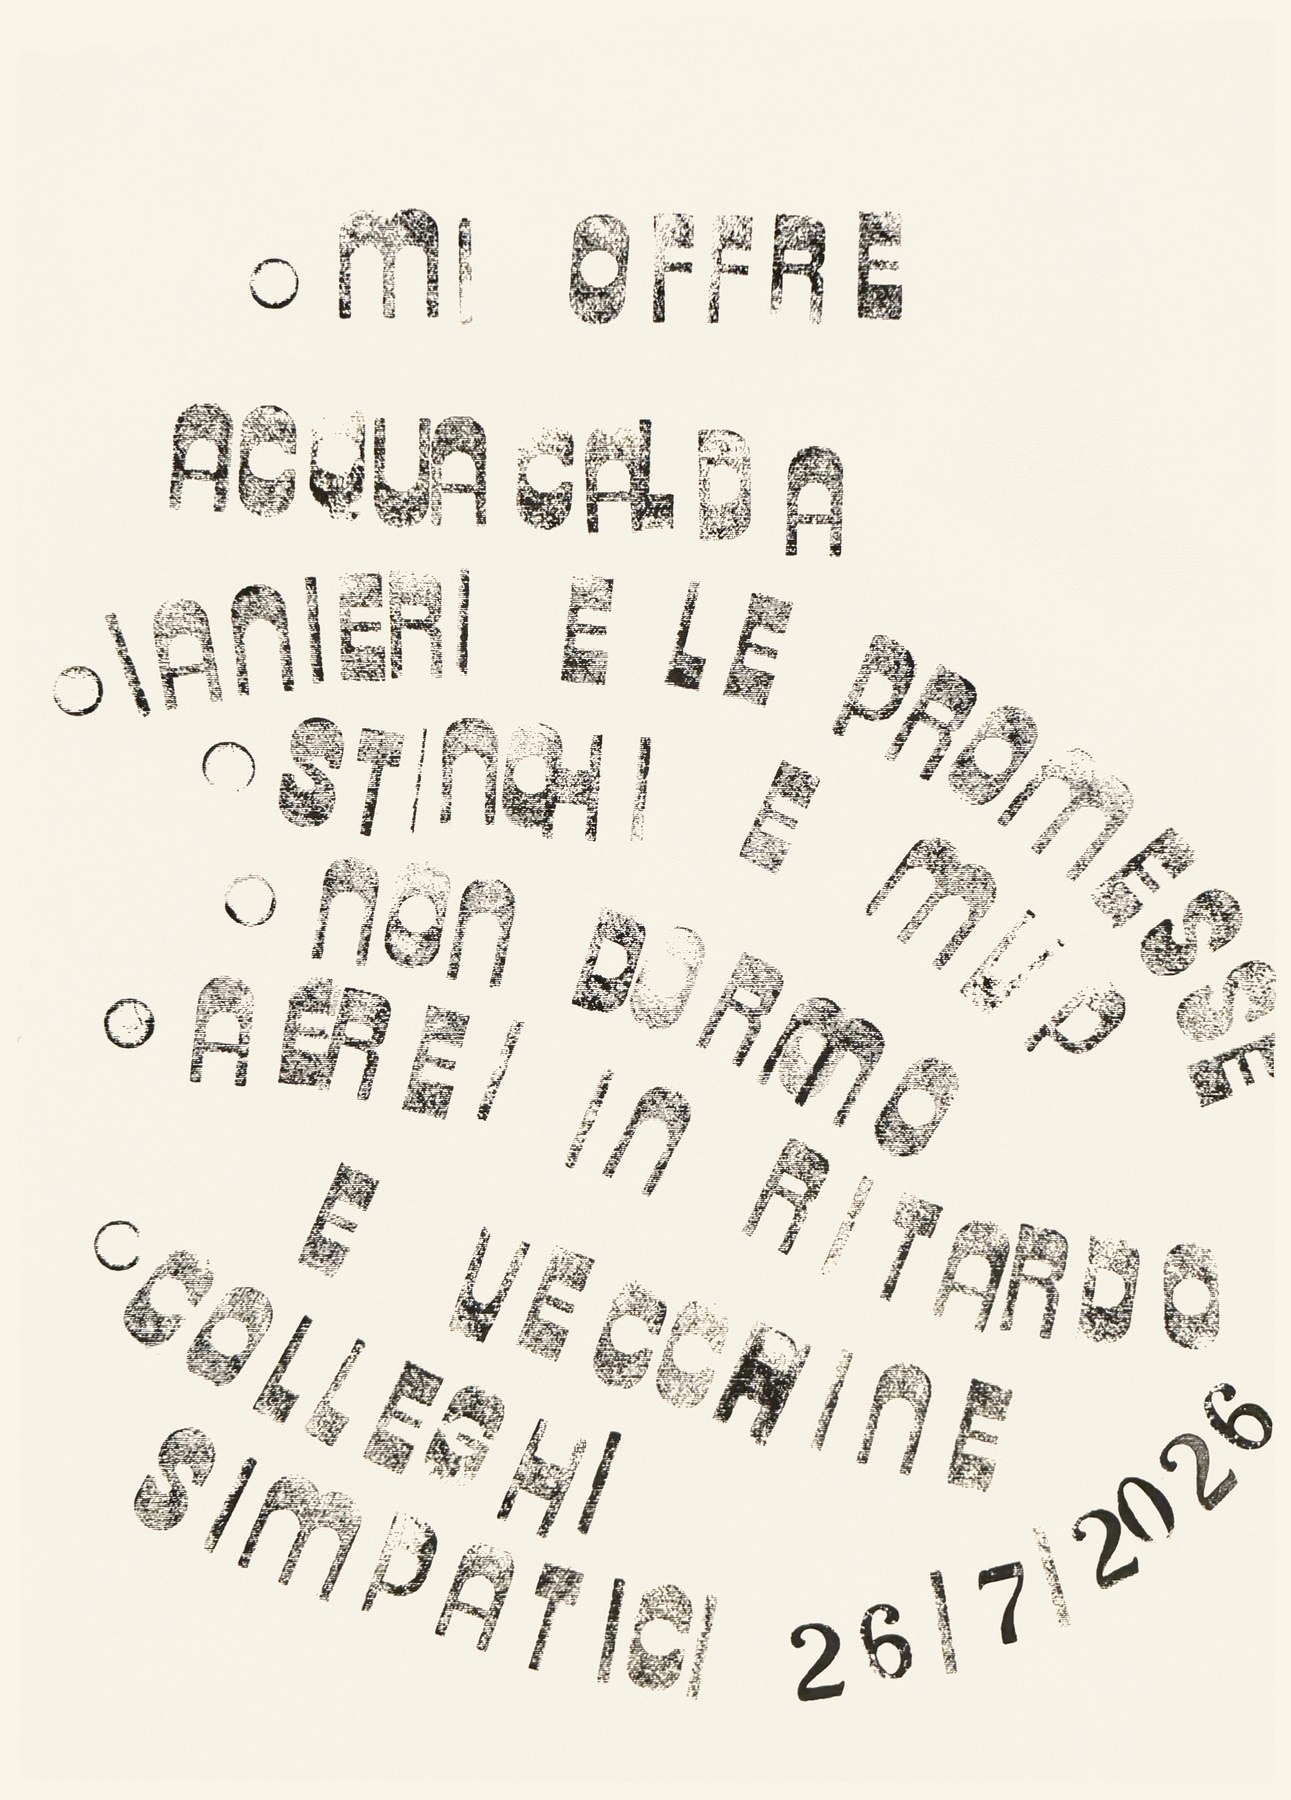 ○ MI OFFRE
ACQUA CALDA
○ IANIERI E LE PROMESSE
○ STINCHI E MUP
○ NON DORMO
○ AEREI IN RITARDO
E VECCHINE
○ COLLEGHI
SIMPATICI
26/7/2026